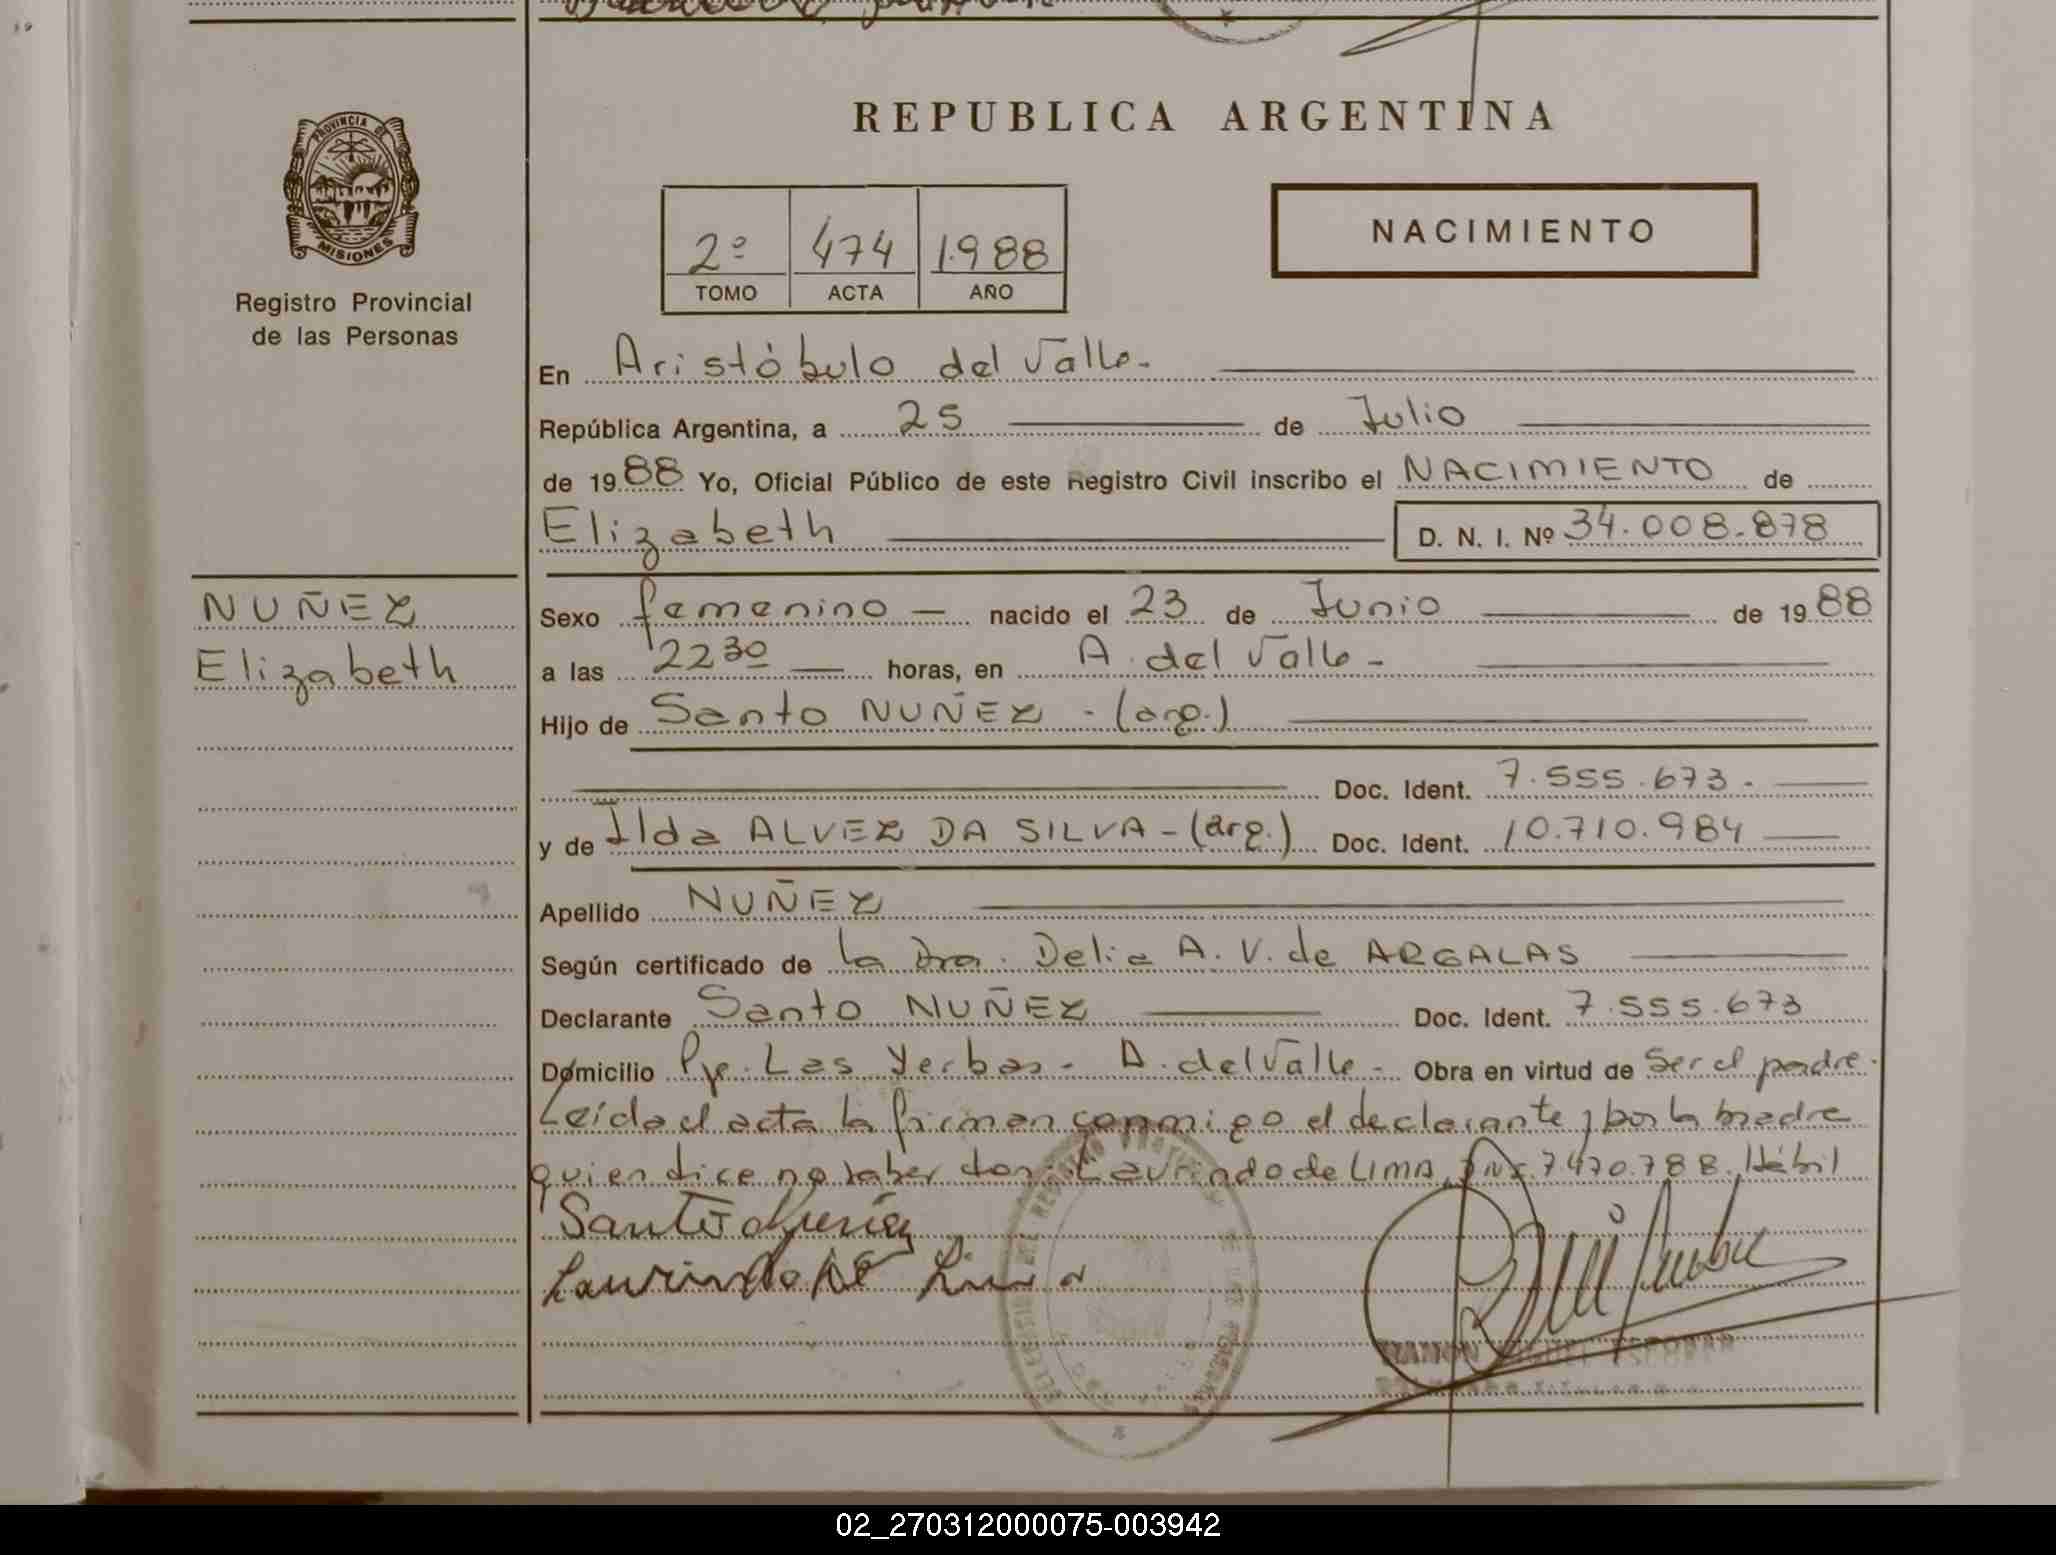 REPUBLICA ARGENTINA
PROVINCIA DE
MISIONES
Registro Provincial
de las Personas
NACIMIENTO
2º 474 1.988
TOMO ACTA AÑO
En Aristóbulo del Valle.
República Argentina, a 25 de Julio
de 1988 Yo, Oficial Público de este Registro Civil inscribo el NACIMIENTO de
Elizabeth D. N. I. Nº 34.008.878
NUÑEZ
Elizabeth
Sexo femenino nacido el 23 de Junio de 1988
a las 22 30 horas, en A. del Valle -
Hijo de Santo NUÑEZ - (arg.)
Doc. Ident. 7.555.673.
y de Ilda ALVEZ DA SILVA - (arg.) Doc. Ident. 10.710.984
Apellido NUÑEZ
Según certificado de la Dra. Delia A. V. de ARGALAS
Declarante Santo NUÑEZ Doc. Ident. 7.555.673
Domicilio Pje. Las Yerbas - A. del Valle - Obra en virtud de Ser el padre.
Leída el acta la firman conmigo el declarante y por la madre
quien dice no saber don: Laurindo de LIMA, 7.470.788. Hábil
Santo Nuñez
Laurindo de Lima
02_270312000075-003942